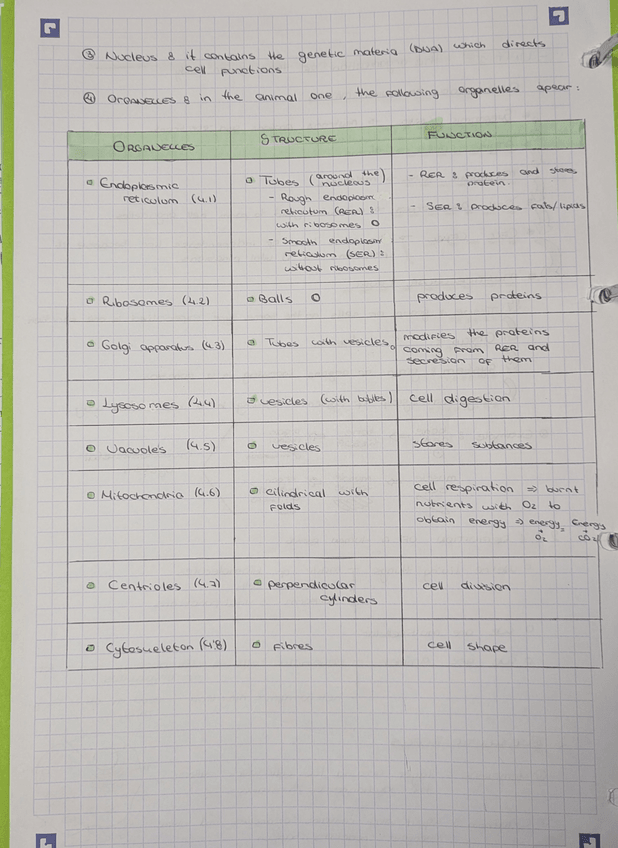 ③ Nucleus : it contains the genetic materia (DNA) which directs
cell functions
④ Organelles : in the animal one, the following organelles apear :
ORGANELLES
STRUCTURE
FUNCTION
Endoplasmic
reticulum (4.1)
Tubes (around the)
nucleous
- Rough endoplasm
reticutum (RER) :
with ribosomes O
- Smooth endoplasm
reticulum (SER) :
without ribosomes
- RER : produces and stores
protein.
- SER : produces fats/lipids
Ribosomes (4.2)
Balls O
produces proteins
Golgi apparatus (4.3)
Tubes with vesicles
modifies the proteins
coming from RER and
secresion of them
Lysosomes (4.4)
vesicles (with
cell digestion
Vacuoles (4.5)
vesicles
stores subtances
Mitochondria (4.6)
cilindrical with
folds
cell respiration ⇒ burnt
nutrients with O2 to
obtain energy ⇒ energy = Energy
+ +
O2 CO2
Centrioles (4.7)
perpendicular
cylinders
cell division
Cytosueleton (4.8)
Fibres
cell shape